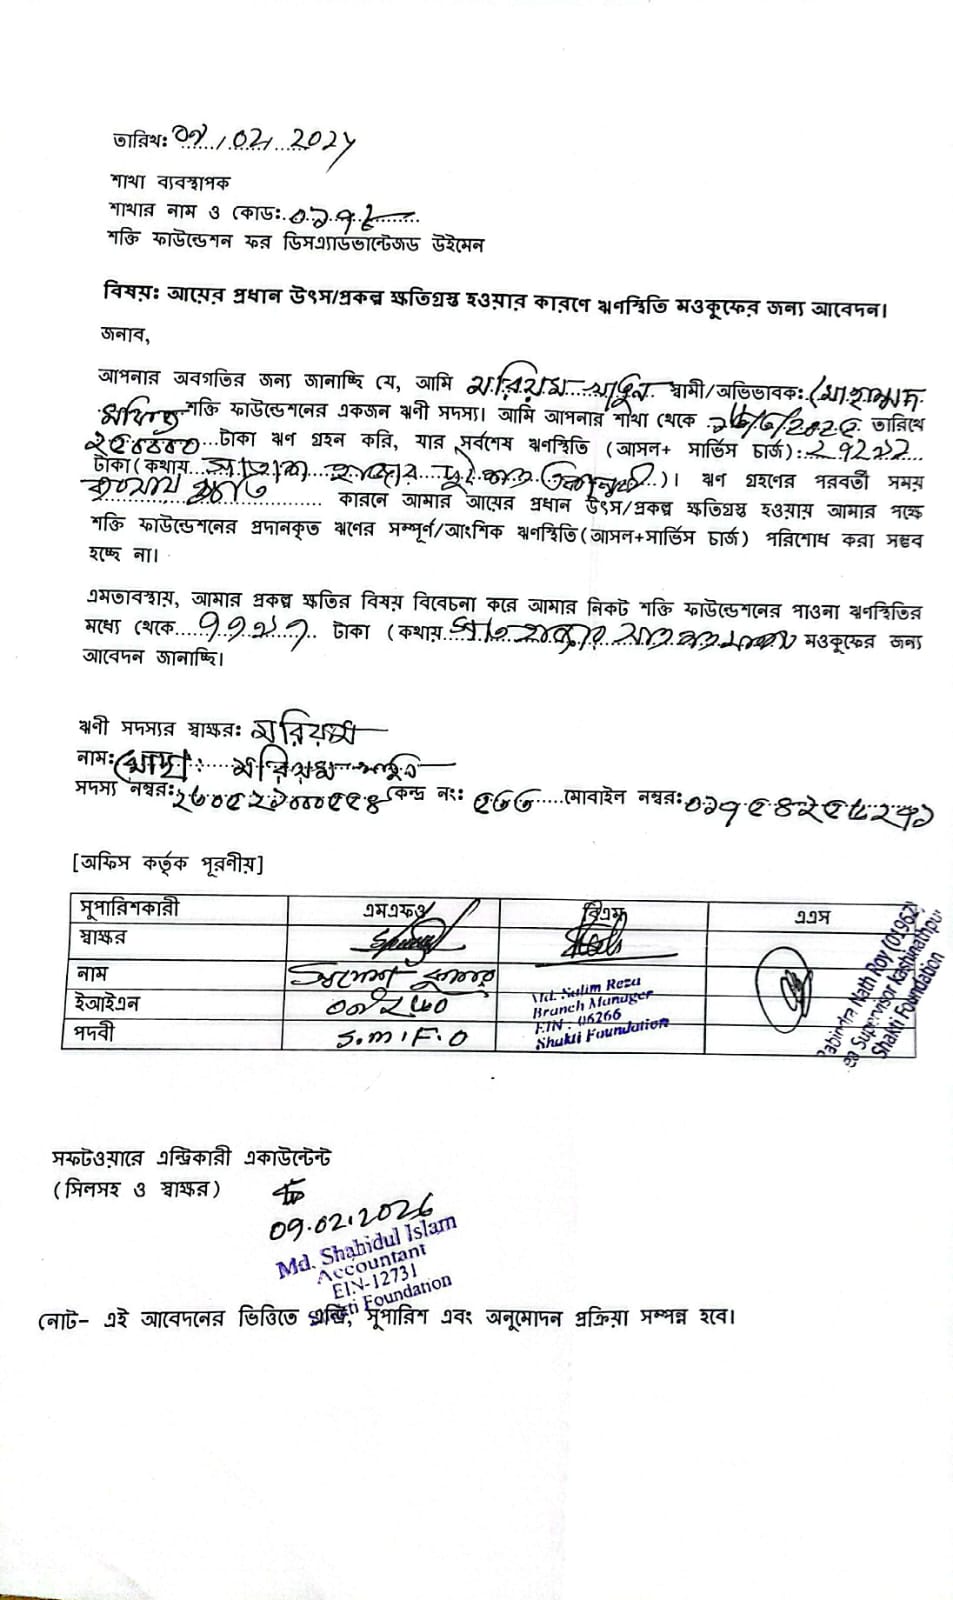 তারিখ: ০৯/০২/২০২৬
শাখা ব্যবস্থাপক
শাখার নাম ও কোড: ০১৭৮
শক্তি ফাউন্ডেশন ফর ডিসএ্যাডভান্টেজড উইমেন
বিষয়: আয়ের প্রধান উৎস/প্রকল্প ক্ষতিগ্রস্ত হওয়ার কারণে ঋণস্থিতি মওকুফের জন্য আবেদন।
জনাব,
আপনার অবগতির জন্য জানাচ্ছি যে, আমি মরিয়ম খাতুন স্বামী/অভিভাবক: মোহাম্মদ
শক্তি ফাউন্ডেশনের একজন ঋণী সদস্য। আমি আপনার শাখা থেকে তারিখে
টাকা ঋণ গ্রহন করি, যার সর্বশেষ ঋণস্থিতি (আসল+ সার্ভিস চার্জ):
টাকা (কথায় হাজার দুই শত)। ঋণ গ্রহণের পরবর্তী সময়
ব্যবসায় ক্ষতি কারনে আমার আয়ের প্রধান উৎস/প্রকল্প ক্ষতিগ্রস্ত হওয়ায় আমার পক্ষে
শক্তি ফাউন্ডেশনের প্রদানকৃত ঋণের সম্পূর্ণ/আংশিক ঋণস্থিতি(আসল+সার্ভিস চার্জ) পরিশোধ করা সম্ভব
হচ্ছে না।
এমতাবস্থায়, আমার প্রকল্প ক্ষতির বিষয় বিবেচনা করে আমার নিকট শক্তি ফাউন্ডেশনের পাওনা ঋণস্থিতির
মধ্যে থেকে ৭৭১৭ টাকা (কথায় সাত হাজার সাত শত সতের মওকুফের জন্য
আবেদন জানাচ্ছি।
ঋণী সদস্যর স্বাক্ষর: মরিয়ম
নাম: মোছা: মরিয়ম খাতুন
সদস্য নম্বর: কেন্দ্র নং: মোবাইল নম্বর:
[অফিস কর্তৃক পূরণীয়]
সুপারিশকারী এমএফও বিএম এএস
স্বাক্ষর
নাম কুমার Md. Salim Reza
Branch Manager
ইআইএন EIN : 06266
পদবী S.M.F.O Shakti Foundation
Rabindra Nath Roy (01962)
Area Supervisor Kashinathpur
Shakti Foundation
সফটওয়ারে এন্ট্রিকারী একাউন্টেন্ট
(সিলসহ ও স্বাক্ষর)
09.02.2026
Md. Shahidul Islam
Accountant
EIN-12731
Shakti Foundation
নোট- এই আবেদনের ভিত্তিতে এন্ট্রি, সুপারিশ এবং অনুমোদন প্রক্রিয়া সম্পন্ন হবে।